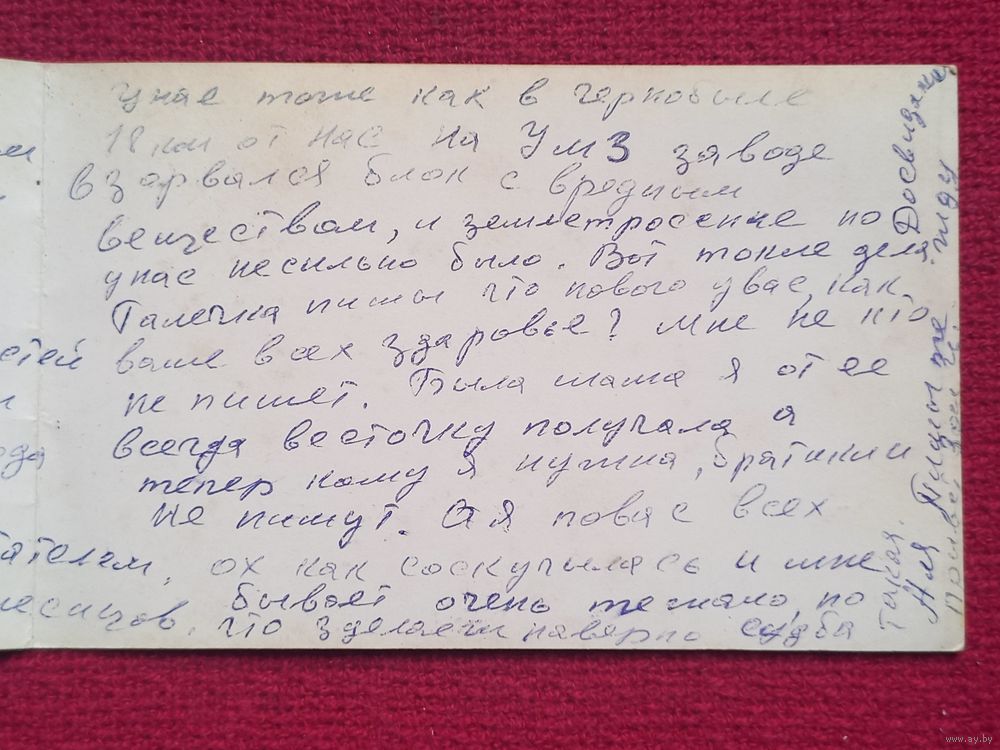 унас тоже как в чернобыле
18 км от нас на УмЗ заводе
взорвался блок с вредным
веществом, и землетросение но
унас несильно было. Вот токие дела
Галечка пишы что нового увас, как
ваше всех здаровье? Мне не кто
не пишет. Была мама я от ее
всегда весточку получала а
тепер кому я нужна, братики и
не пишут. А я повас всех
ох как соскучылась и мне
бывает очень тежало, но
что зделаеш наверно судба
такая.
Досвидание
Пишы жду
привет
стей
ода